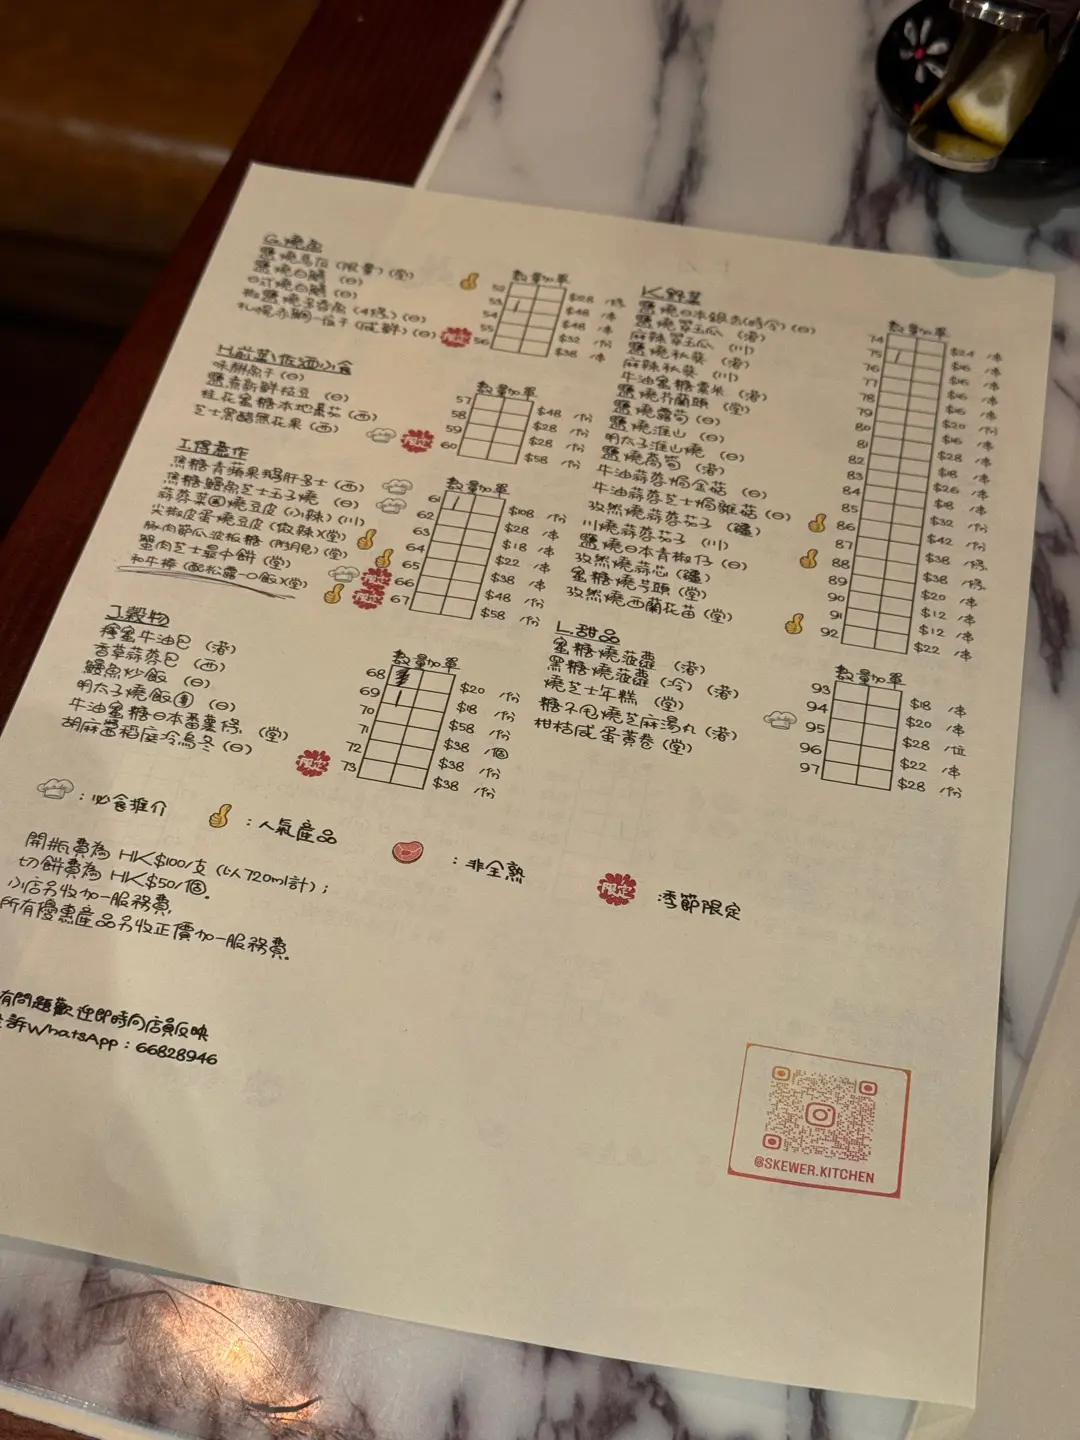 G.燒魚
數量加單
鹽燒馬友 (限量) (堂) 52 $28 /條
鹽燒白鱔 (日) 53 $48 /串
日式燒白鱔 (日) 54 $48 /串
椒鹽燒多春魚 (4條) (日) 55 $32 /份
札幌赤鯛一夜干 (咸鮮) (日) 限定 56 $38 /串
H.前菜/佐酒小食
數量加單
味付魚子 (日) 57 $48 /份
鹽煮新鮮枝豆 (日) 58 $28 /份
桂花蜜糖本地番茄 (西) 59 $28 /份
芝士黑醋無花果 (西) 限定 60 $58 /份
I.得意作
數量加單
焦糖青蘋果鵝肝多士 (西) 61 $108 /份
焦糖鰻魚芝士玉子燒 (日) 62 $28 /串
蒜蓉菜園燒豆皮 (小辣) (川) 63 $18 /串
尖椒皮蛋燒豆皮 (微辣) (堂) 64 $22 /串
豚肉節瓜波板糖 (附月見) (堂) 65 $38 /串
蟹肉芝士最中餅 (堂) 限定 66 $48 /份
和牛棒 (配松露一口飯) (堂) 限定 67 $58 /份
J.穀物
數量加單
蜂蜜牛油包 (港) 68 $20 /份
香草蒜蓉包 (西) 69 $18 /份
鰻魚炒飯 (日) 70 $58 /份
明太子燒飯團 (日) 71 $38 /個
牛油蜜糖日本番薯條 (堂) 72 $38 /份
胡麻醬稻庭冷烏冬 (日) 限定 73 $38 /份
K.野菜
數量加單
鹽燒日本銀杏(時令) (日) 74 $24 /串
鹽燒翠玉瓜 (港) 75 $16 /串
麻辣翠玉瓜 (川) 76 $16 /串
鹽燒秋葵 (港) 77 $16 /串
麻辣秋葵 (川) 78 $16 /串
牛油蜜糖粟米 (港) 79 $20 /份
鹽燒芥蘭頭 (堂) 80 $16 /串
鹽燒露筍 (日) 81 $28 /串
鹽燒淮山 (日) 82 $18 /串
明太子淮山燒 (日) 83 $26 /串
鹽燒萵筍 (港) 84 $18 /串
牛油蒜蓉焗金菇 (日) 85 $32 /份
牛油蒜蓉芝士焗雜菇 (日) 86 $42 /份
孜然燒蒜蓉茄子 (疆) 87 $38 /條
川燒蒜蓉茄子 (川) 88 $38 /條
鹽燒日本青椒仔 (日) 89 $20 /串
孜然燒蒜芯 (疆) 90 $12 /串
蜜糖燒芋頭 (堂) 91 $12 /串
孜然燒西蘭花苗 (堂) 92 $22 /串
L.甜品
數量加單
蜜糖燒菠蘿 (港) 93 $18 /串
黑糖燒菠蘿 (冷) (港) 94 $20 /串
燒芝士年糕 (堂) 95 $28 /位
糖不甩燒芝麻湯丸 (港) 96 $22 /串
柑桔咸蛋黃卷 (堂) 97 $28 /份
:必食推介
:人氣產品
:非全熟
限定 季節限定
開瓶費為 HK$100/支 (以720ml計);
切餅費為 HK$50/個。
小店另收加一服務費
所有優惠產品另收正價加一服務費。
有問題歡迎即時向店員反映
訴WhatsApp:66828946
@SKEWER.KITCHEN